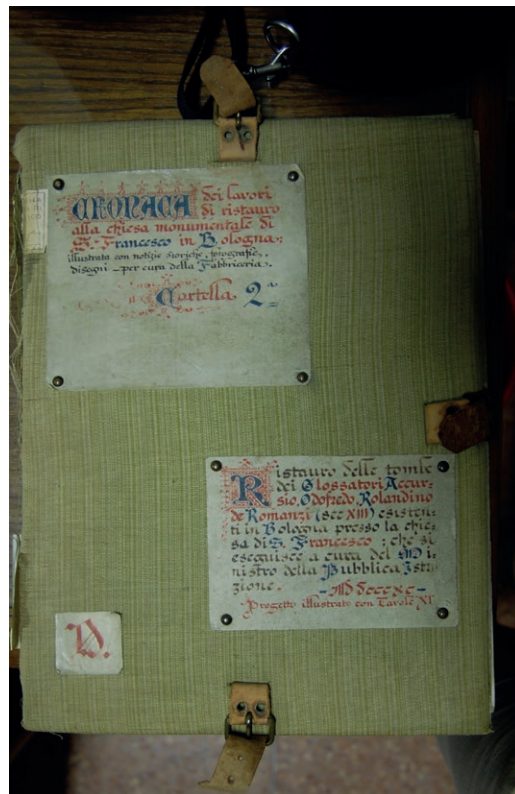 CRONACA dei lavori
di ristauro
alla chiesa monumentale di
S. Francesco in Bologna:
illustrata con notizie storiche, fotografie,
disegni - per cura della Fabbriceria.
Cartella 2ª
Ristauro delle tombe
dei Glossatori Accur-
sio, Odofredo, Rolandino
de Romanzi (sec XIII) esisten-
ti in Bologna presso la chie-
sa di S. Francesco : che si
eseguisce a cura del Mi-
nistro della Pubblica Istru
zione.
- MDdcccxc -
Progetto illustrato con Tavole XI